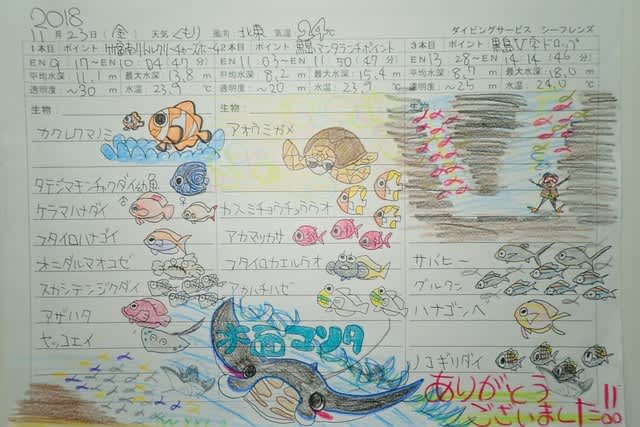 2018
11月23日(金) 天気 くもり 風向 北東 気温 24℃ ダイビングサービス シーフレンズ
1本目 ポイント 竹富ありトレクリーチャーズホール 2本目 ポイント 黒島マンタランチポイント 3本目 ポイント 黒島V字ドロップ
EN 9 : 17 〜 EN 10 : 04 (47分) EN 11 : 03 〜 EN 11 : 50 (47分) EN 13 : 28 〜 EN 14 : 14 (46分)
平均水深: 11.1 m 最大水深: 13.8 m 平均水深: 8.2 m 最大水深: 15.4 m 平均水深: 8.7 m 最大水深: 18.0 m
透明度: 〜30 m 水温: 23.9 ℃ 透明度: 〜20 m 水温: 23.9 ℃ 透明度: 〜25 m 水温: 24.0 ℃
生物: 生物: 生物:
カクレクマノミ アオウミガメ
タテジマキンチャクダイ幼魚
ケラマハナダイ カスミチョウチョウウオ
フタイロハナゴイ アカマツカサ
オニダルマオコゼ フタイロカエルウオ サバヒー
スカシテンジクダイ アカハチハゼ グルクン
アザハタ ハナゴンベ
ヤッコエイ 水面マンタ
ノコギリダイ
ありがとう
ございました!!